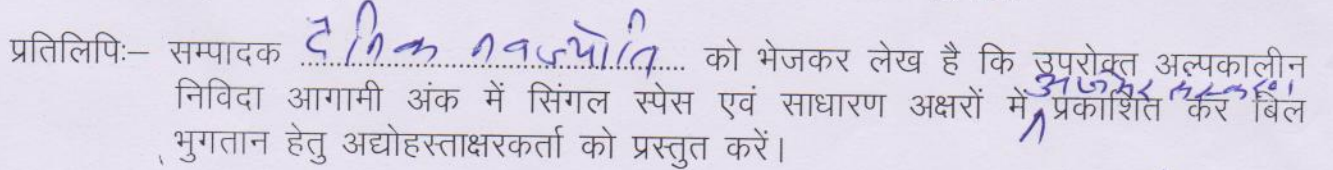 प्रतिलिपिः– सम्पादक दैनिक नवज्योति को भेजकर लेख है कि उपरोक्त अल्पकालीन
निविदा आगामी अंक में सिंगल स्पेस एवं साधारण अक्षरों में अजमेर संस्करण प्रकाशित कर बिल
भुगतान हेतु अद्योहस्ताक्षरकर्ता को प्रस्तुत करें।